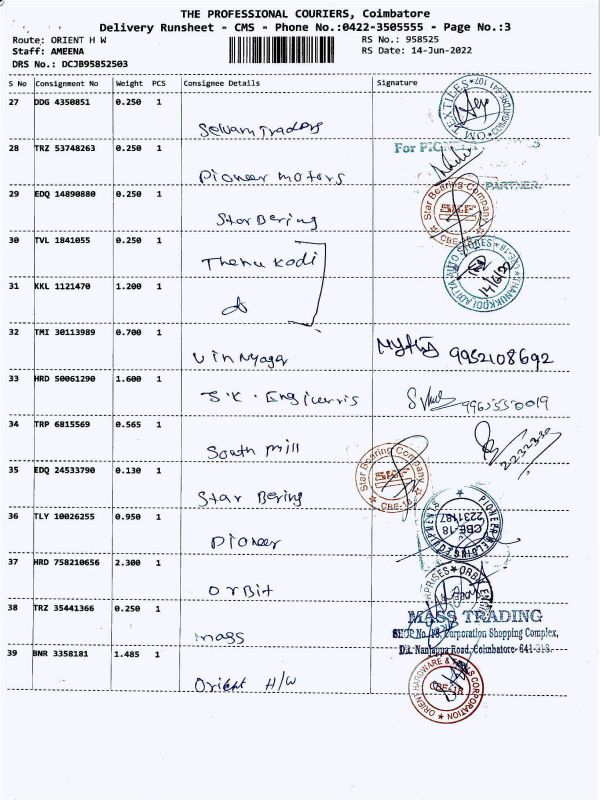 THE PROFESSIONAL COURIERS, Coimbatore
Delivery Runsheet - CMS - Phone No.:0422-3505555 - Page No.:3
Route: ORIENT H W
RS No.: 958525
Staff: AMEENA
RS Date: 14-Jun-2022
DRS No.: DCJB95852503
S No Consignment No Weight PCS Consignee Details Signature
27 DDG 4350851 0.250 1
Selvam Traders
OM TEXTILES
28 TRZ 53748263 0.250 1
For
Pioneer motors
PARTNER.
29 EDQ 14890880 0.250 1
Star Bering
Star Bearing Company
SKF
CBE-18
30 TVL 1841055 0.250 1
Thenukodi
31 KKL 1121470 1.200 1
14/6/22
32 TMI 30113989 0.700 1
Vinnyaga
9952108692
33 HRD 50061290 1.600 1
S.K. Enginerris
34 TRP 6815569 0.565 1
South mill
35 EDQ 24533790 0.130 1
Star Bering
Star Bearing Company
SKF
CBE-18
36 TLY 10026255 0.950 1
Pioneer
PIONEER WELDING EQUIPMENTS
CBE-18
2231187
37 HRD 758210656 2.300 1
Orbit
38 TRZ 35441366 0.250 1
mass
MASS TRADING
SHOP No. 18, Corporation Shopping Complex,
Dr. Nanjappa Road, Coimbatore- 641 018.
39 BNR 3358181 1.485 1
Orient H/W
ORIENT HARDWARE & TOOLS CORPORATION
CBE-18